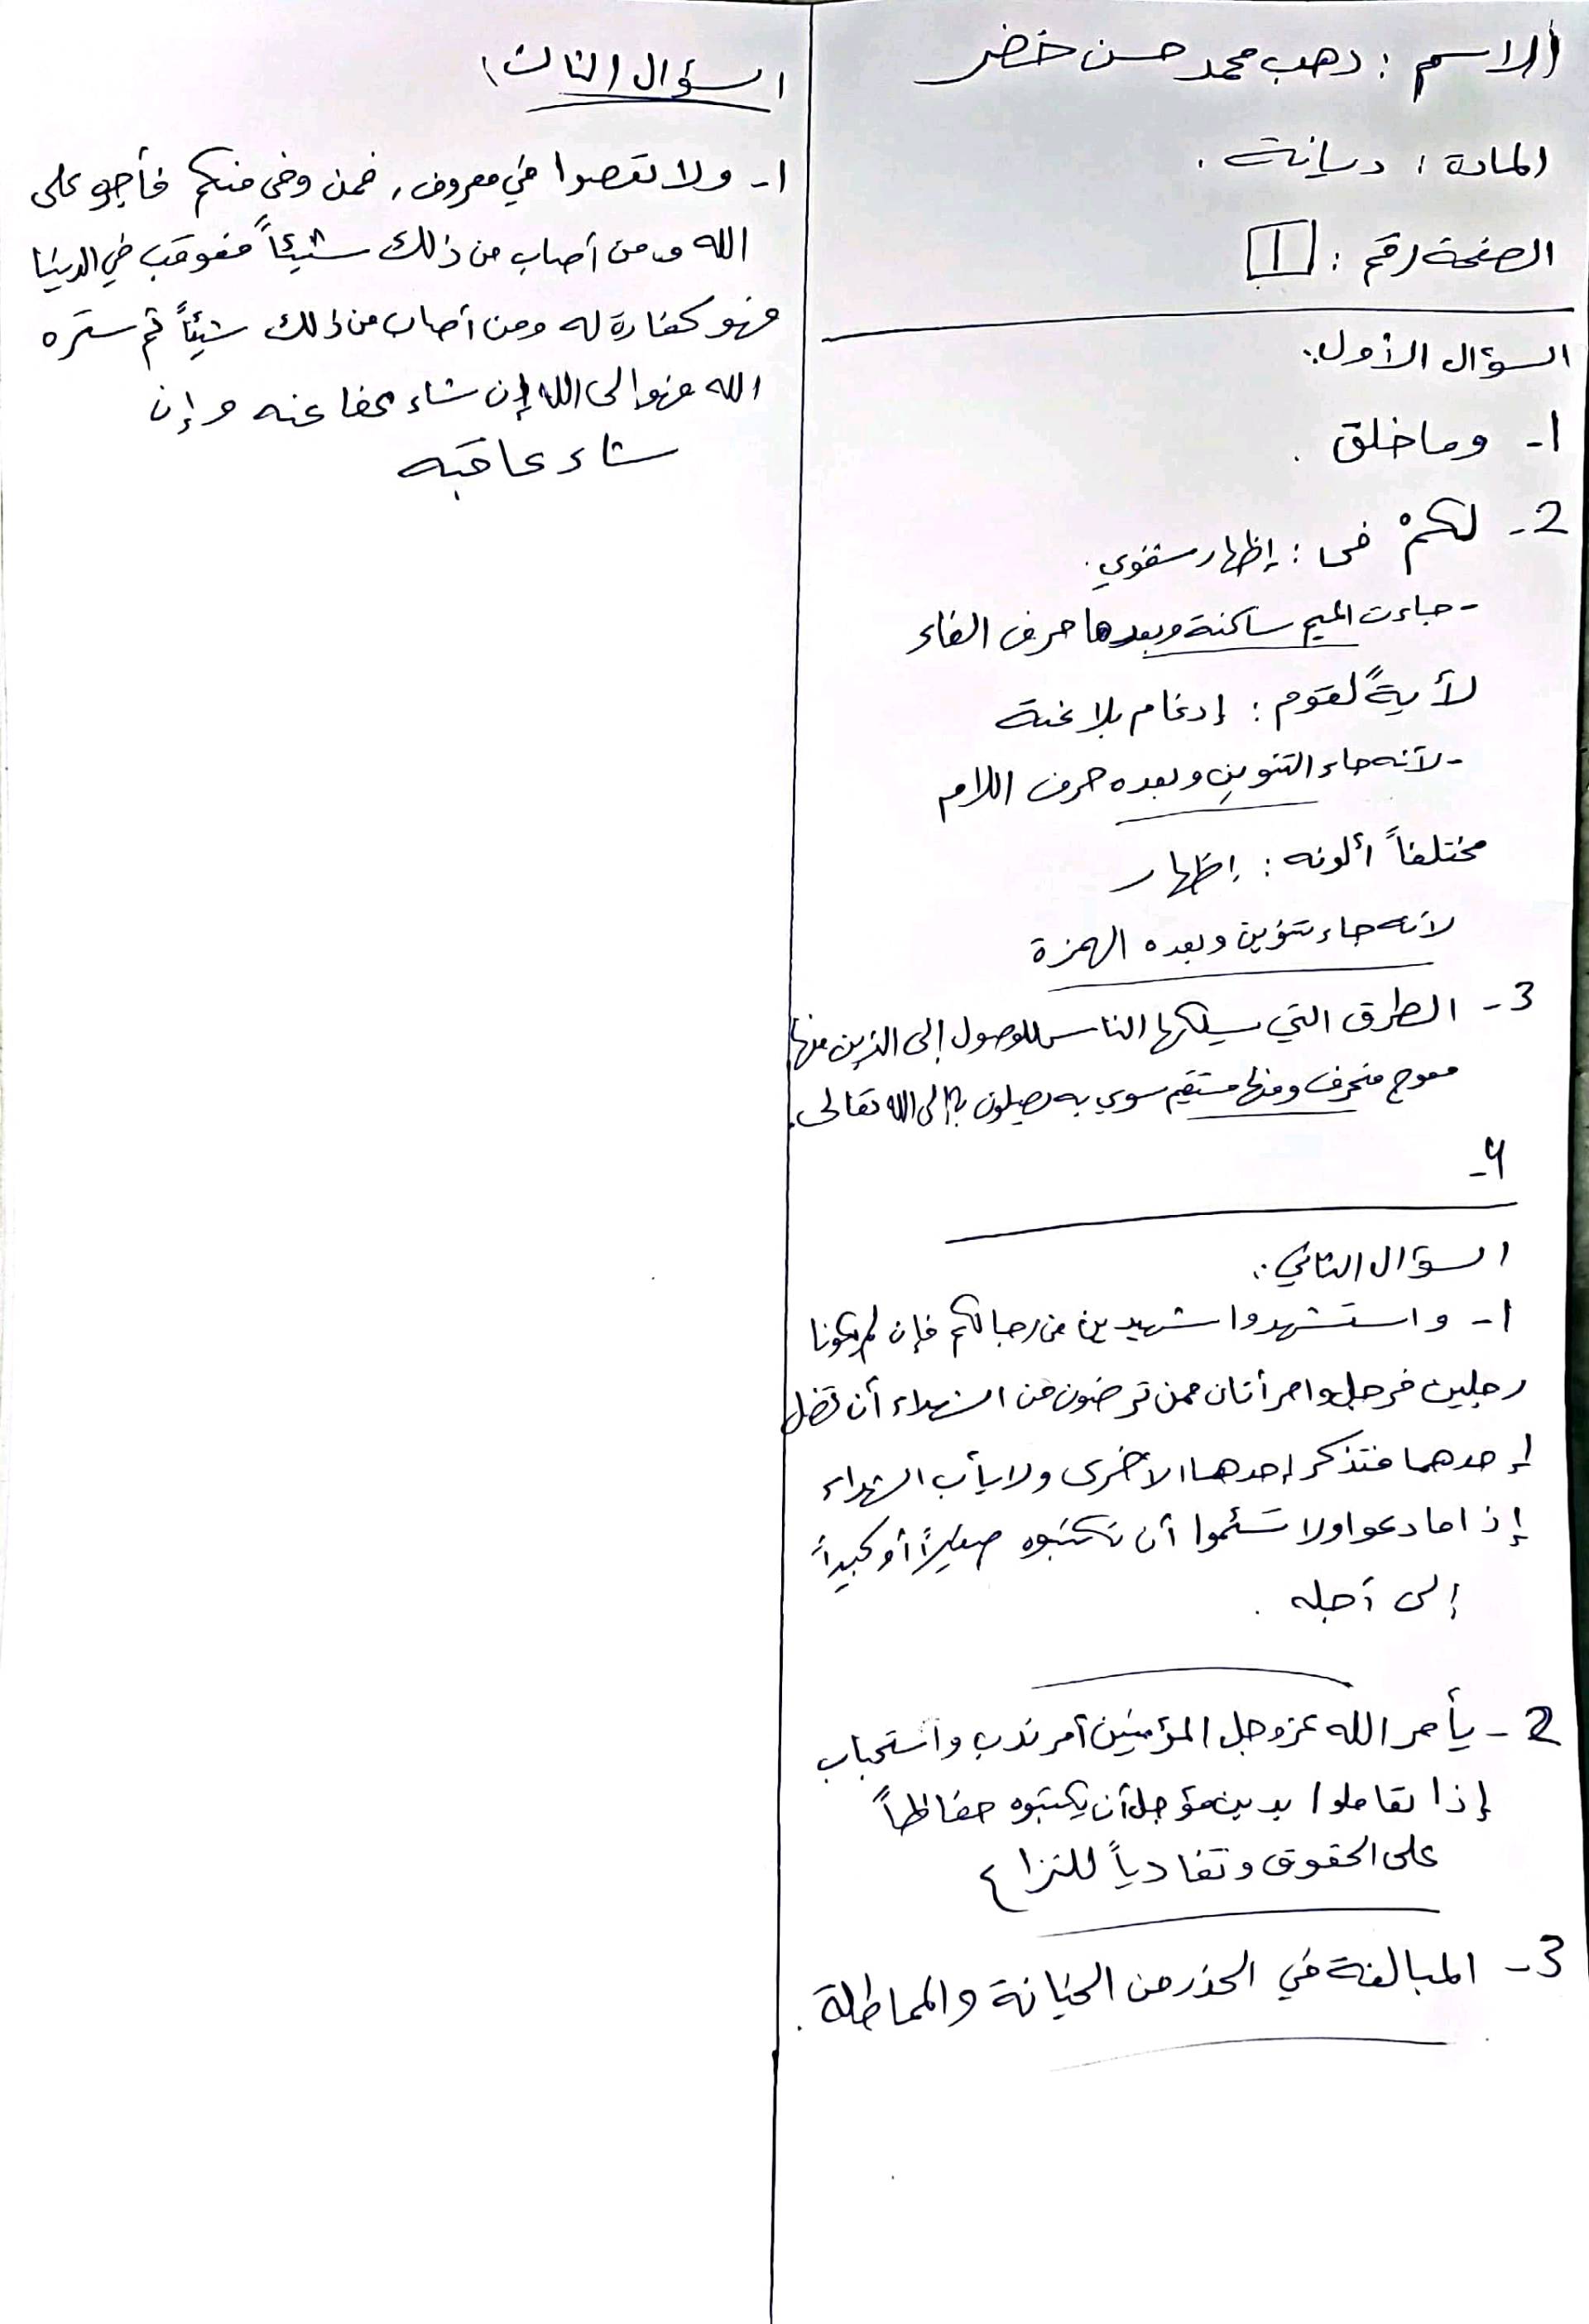 الاسم : دهب محمد حسن خضر
المادة : ديانة .
الصفحة رقم : 1
السؤال الأول :
1- وما خلق .
2- لكمْ فى : إظهار شفوي .
- جاءت الميم ساكنة وبعدها حرف الفاء
لأيةً لقوم : إدغام بلا غنة
- لأنه جاء التنوين وبعده حرف اللام
مختلفاً ألونه : إظهار
لأنه جاء تنوين وبعده الهمزة
3- الطرق التي يسلكها الناس للوصول إلى الدين منها
معوج منحرف ومنها مستقيم سوي به يصلون إلى الله تعالى .
4-
السؤال الثاني :
1- واستشهدوا شهيدين من رجالكم فإن لم يكونا
رجلين فرجل وامرأتان ممن ترضون من الشهداء أن تضل
إحدهما فتذكر إحدهما الأخرى ولا يأب الشهداء
إذا ما دعوا ولا تسئموا أن تكتبوه صغيراً أو كبيراً
إلى أجله .
2- يأمر الله عز وجل المؤمنين أمر ندب واستحباب
إذا تعاملوا بدين مؤجل أن يكتبوه حفاظاً
على الحقوق وتفادياً للنزاع
3- المبالغة في الحذر من الخيانة والمماطلة .
السؤال الثالث :
1- ولا تعصوا في معروف , فمن وفى منكم فأجره على
الله ومن أصاب من ذلك شيئاً فعوقب في الدنيا
فهو كفارة له ومن أصاب من ذلك شيئاً ثم ستره
الله فهو إلى الله إن شاء عفا عنه وإن
شاء عاقبه